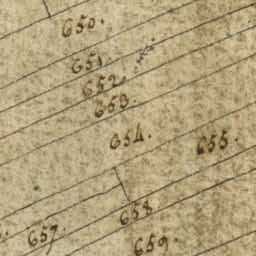 650.
651.
652.
653.
654.
655.
657.
658.
659.